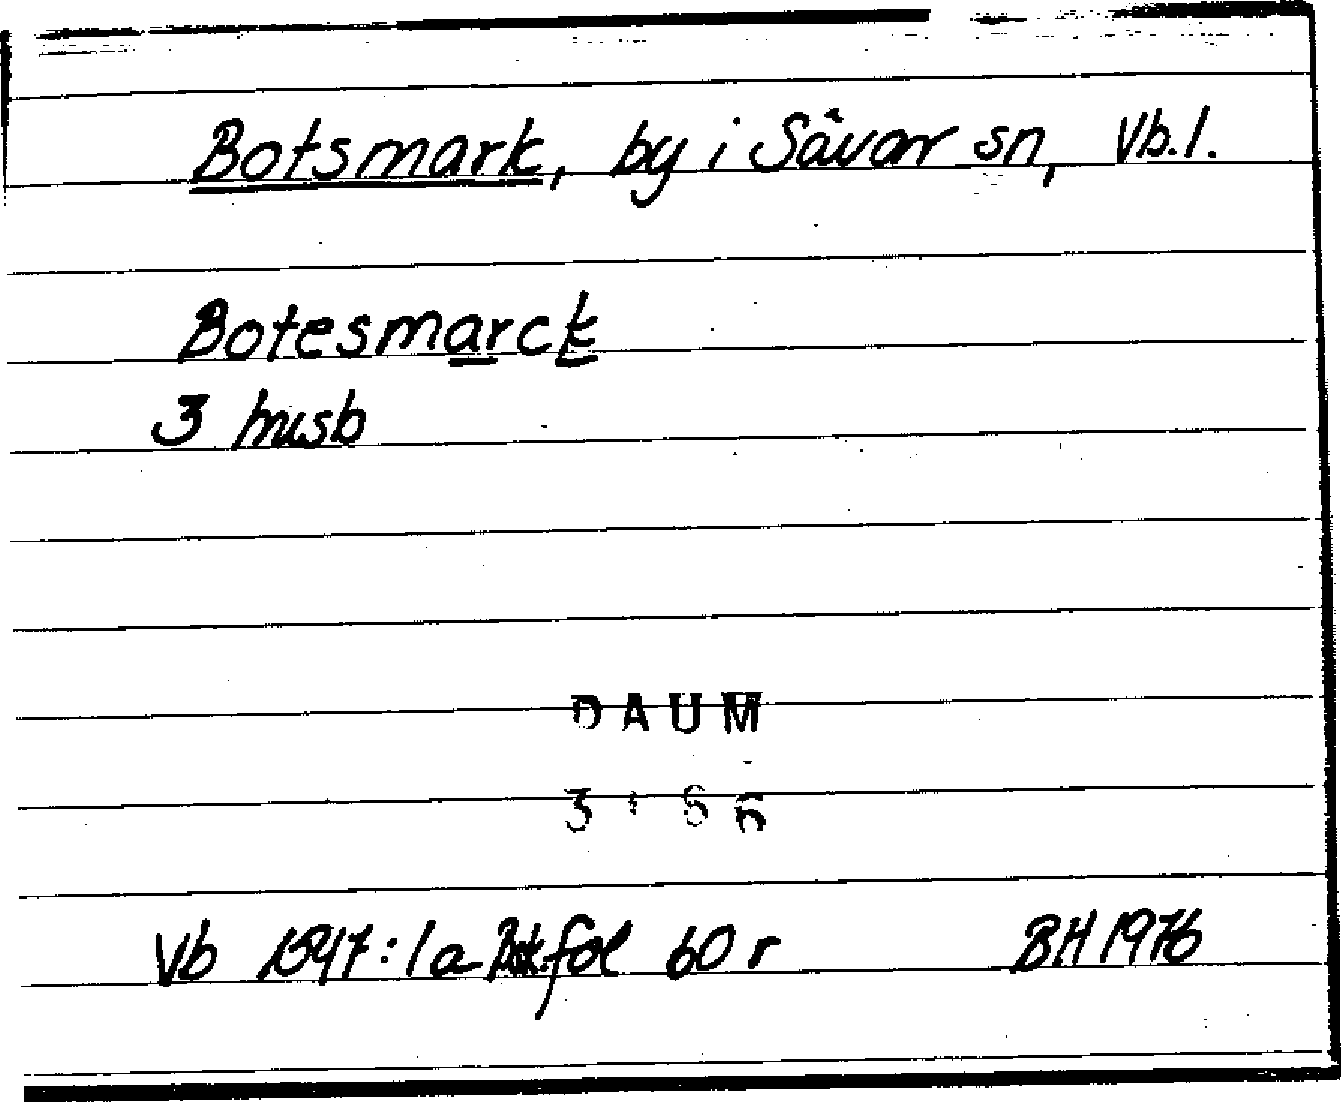 Botsmark, by i Sävar sn, Vb.l.
Botesmarck
3 husb
DAUM
3 : 6 6
Vb 1547:1a fol 60 r BH 1976